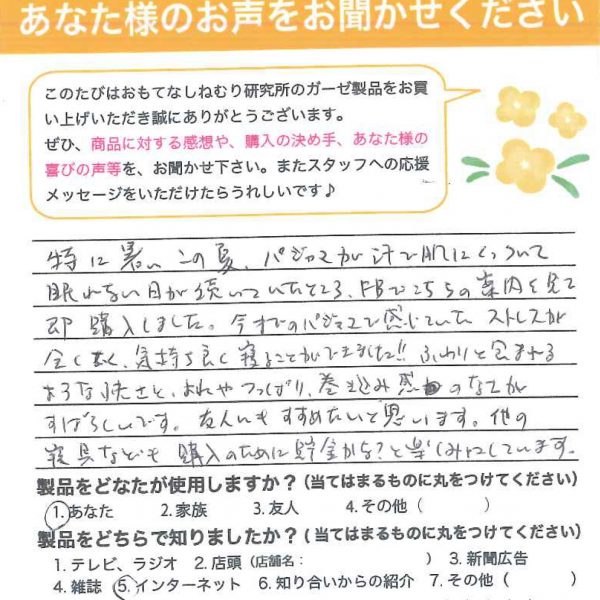 あなた様のお声をお聞かせください
このたびはおもてなしねむり研究所のガーゼ製品をお買
い上げいただき誠にありがとうございます。
ぜひ、商品に対する感想や、購入の決め手、あなた様の
喜びの声等を、お聞かせ下さい。またスタッフへの応援
メッセージをいただけたらうれしいです♪
特に暑いこの夏、パジャマが汗で肌にくっついて
眠れない日が続いていたところ、FBでこちらの案内を見て
即購入しました。今までのパジャマで感じていたストレスが
全くなく、気持ち良く寝ることができました!! ふわりと包まれる
ような快さと、よれやつっぱり、巻き込み感のなさが
すばらしいです。友人にもすすめたいと思います。他の
寝具なども購入のために貯金かな?と楽しみにしています。
製品をどなたが使用しますか?(当てはまるものに丸をつけてください)
1.あなた 2.家族 3.友人 4.その他( )
製品をどちらで知りましたか?(当てはまるものに丸をつけてください)
1.テレビ、ラジオ 2.店頭(店舗名: ) 3.新聞広告
4.雑誌 5.インターネット 6.知り合いからの紹介 7.その他( )